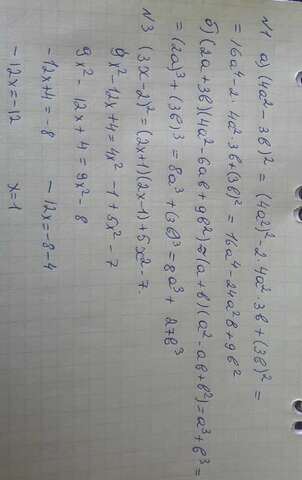 №1 а) (4a²-3в)² = (4a²)²-2·4a²·3в+(3в)² =
= 16a⁴-2·4a²·3в+(3в)² = 16a⁴-24a²в+9в²
б) (2a+3в)(4a²-6aв+9в²)=(a+в)(a²-aв+в²)=a³+в³=
= (2a)³+(3в)³ = 8a³+(3в)³=8a³+27в³
№3 (3x-2)² = (2x+1)(2x-1)+5x²-7.
9x²-12x+4=4x²-1+5x²-7
9x²-12x+4=9x²-8
-12x+4=-8 -12x=-8-4
-12x=-12 x=1